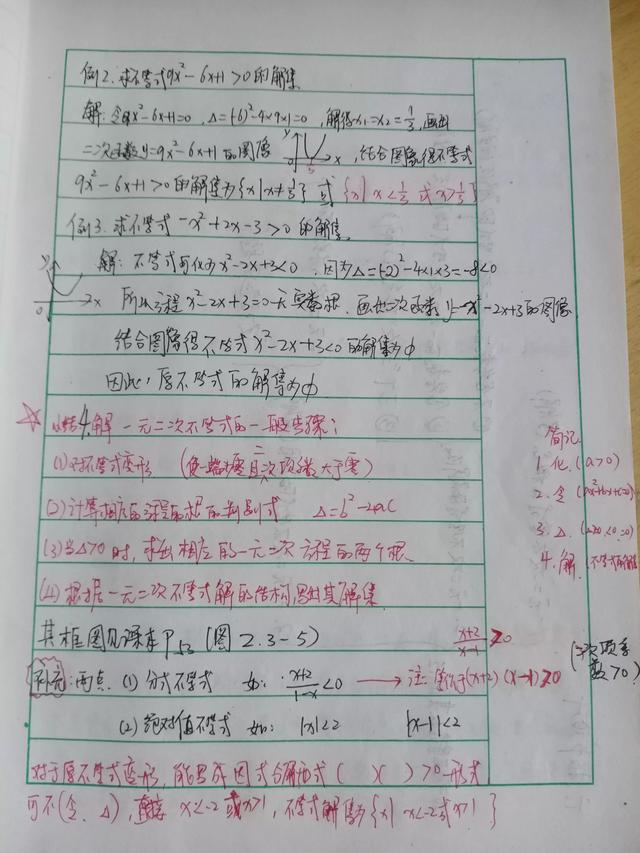 例2. 求不等式9x²-6x+1>0的解集
解: 令9x²-6x+1=0, Δ=(-6)²-4×9×1=0, 解得x₁=x₂=1/3, 画出
二次函数y=9x²-6x+1的图像 y 0 1/3 x , 结合图像得不等式
9x²-6x+1>0的解集为{x|x≠1/3} 或{x|x<1/3 或x>1/3}
例3. 求不等式-x²+2x-3>0的解集
解: 不等式可化为x²-2x+3<0, 因为Δ=(-2)²-4×1×3=-8<0
y 0 x 所以方程x²-2x+3=0无实数根, 画出二次函数y=x²-2x+3的图像
结合图像得不等式x²-2x+3<0的解集为φ
因此, 原不等式的解集为φ
☆ 小结4. 解一元二次不等式的一般步骤:
(1) 对不等式变形 (使一端为零且二次项系数大于零)
(2) 计算相应的方程的根的判别式 Δ=b²-2ac
(3) 当Δ>0时, 求出相应的一元二次方程的两个根
(4) 根据一元二次不等式解的结构, 写出其解集
简记
1. 化 (a>0)
2. 令 (ax²+bx+c=0)
3. Δ (Δ>0,<0,=0)
4. 解 (不等式的解集)
其框图见课本P₅₃ (图2.3-5)
(x+2)/(x-1)>0
补充: 两点. (1) 分式不等式 如: (x+2)/(1-x)<0 → 注: 等价于(x+2)(x-1)>0 (二次项系数>0)
(2) 绝对值不等式 如: |x|<2 |x-1|<2
对于原不等式变形, 能写成因式分解形式( )( )>0形式
可不(令、Δ), 直接x<-2或x>1, 不等式解集为{x|x<-2或x>1}